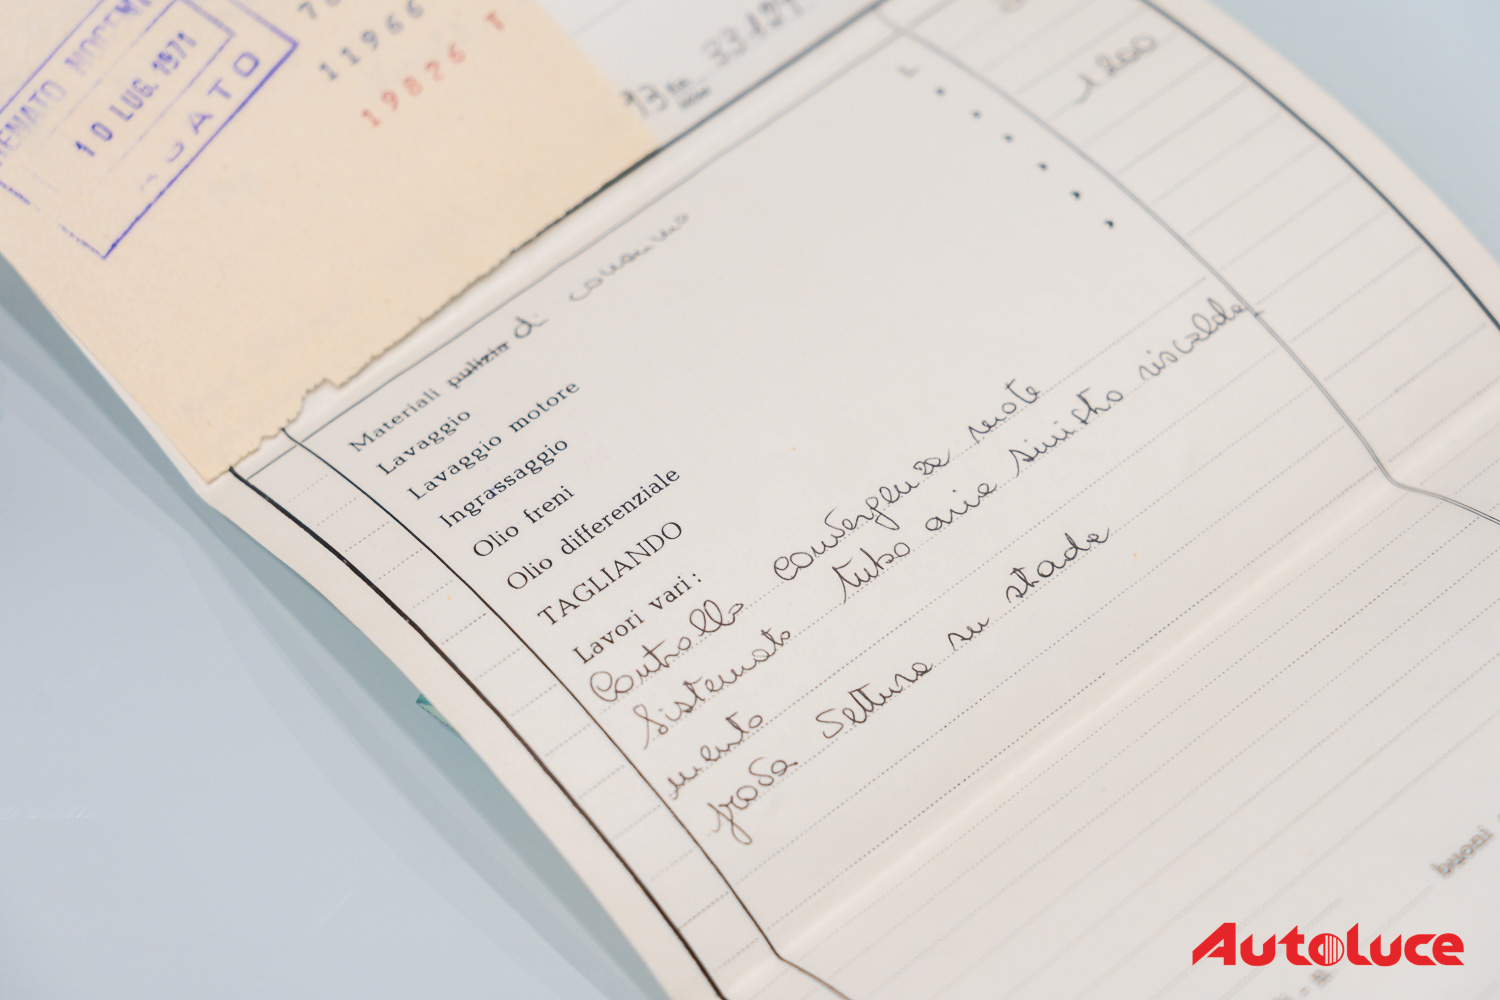 10 LUG. 1971
11966
19826 T
1200
Materiali pulizia di consumo
Lavaggio
Lavaggio motore
Ingrassaggio
Olio freni
Olio differenziale
TAGLIANDO
Lavori vari:
Controllo convergenza ruote
Sistemato tubo aria sinistro riscalda
mento
prova vettura su strada
buoni
Autoluce